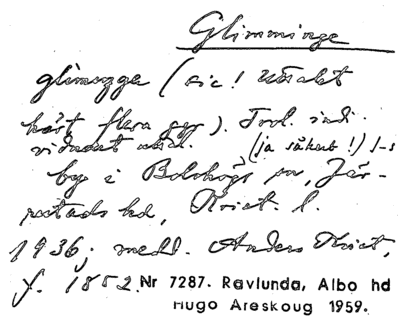 Glimminge
glimmge (sic! Uttalet
hört flera ggr). Trol. indi-
viduent uttal. (ja säkert!) I-s
by i Bolshögs sn, Jär-
restads hd, Krist. l.
1936; medd. Anders Krist,
f. 1852. Nr 7287. Ravlunda, Albo hd
Hugo Areskoug 1959.